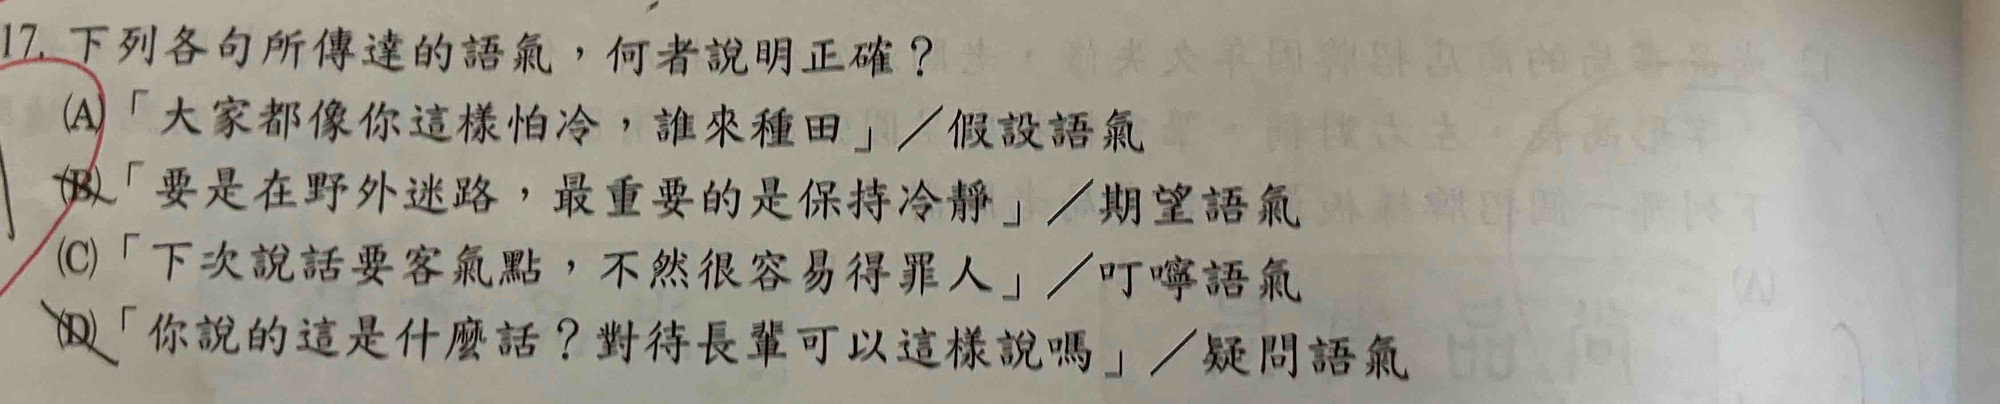 17. 下列各句所傳達的語氣，何者說明正確？
(A)「大家都像你這樣怕冷，誰來種田」／假設語氣
(B)「要是在野外迷路，最重要的是保持冷靜」／期望語氣
(C)「下次說話要客氣點，不然很容易得罪人」／叮嚀語氣
(D)「你說的這是什麼話？對待長輩可以這樣說嗎」／疑問語氣